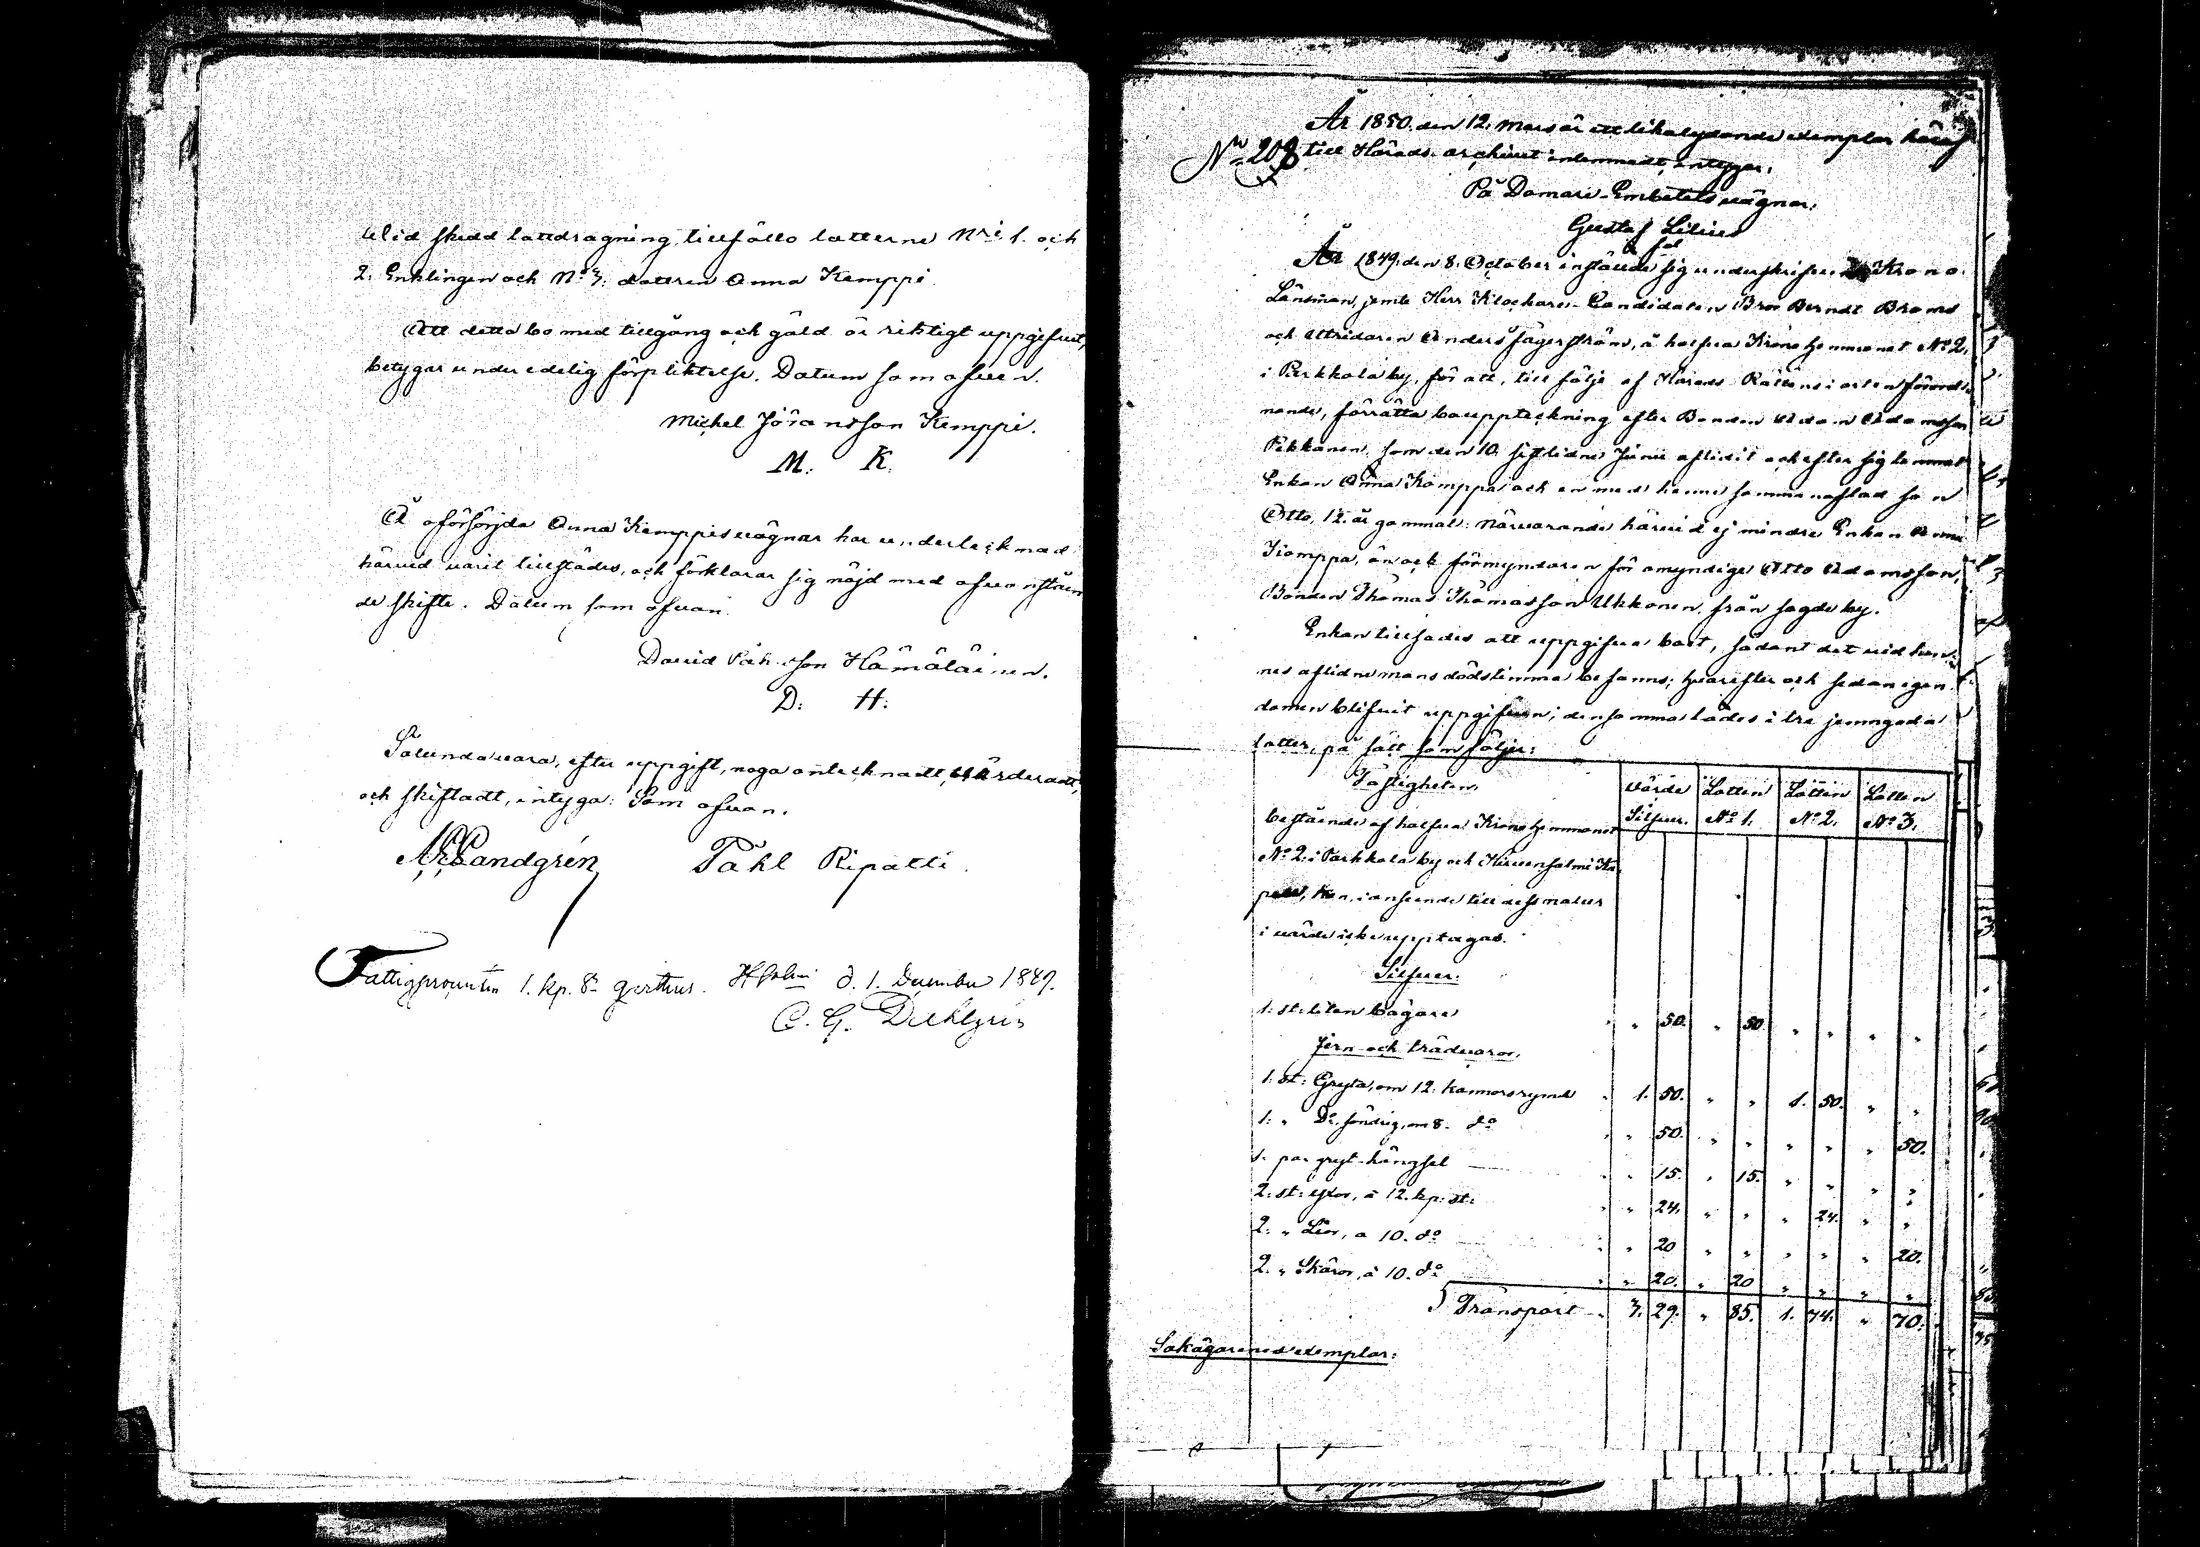 Wid skedd lottdragning, tillföllo lotterne Nri 1. och
2. Enklingen och No 3. dottren Anna Kemppi.
Att detta bo med tillgång och gäld är riktigt uppgifvet,
betygar under edelig förpliktelse. Datum som ofvan.
Michel Jöransson Kemppi.
M. K.
Å oförsörjda Anna Kemppis vägnar har undertecknad
härvid varit tillstädes, och förklarar sig nöjd med ofvanståen
de skifte. Datum som ofvan.
David Påhlsson Hämäläinen.
D. H.
Sålunda vara, efter uppgift, noga antecknadt, värderadt,
och skiftadt, intyga: Som ofvan.
Sandgrén Påhl Ripatti.
Fattigprocenten 1. kp. Sr qvitteras. Hsalmi d. 1. December 1849.
C. G. Dahlgrén
År 1850. den 12. Mars är ett likalydande exemplar häraf
No 208 till Härads-archivet inlemnadt, intygar.
På Domare-Embetets vägnar:
Gustaf Lilius
År 1849. den 8. October instälde sig underskrifven Krono-
Länsman, jemte Herr Klockare-Candidaten Bror Berndt Broms
och Utridaren Anders Fägerström, å halfva Kronohemmanet No 2.
i Parkkola by, för att, till följe af Härads Rättens i orten förord-
nande, förrätta bouppteckning efter Bonden Adam Adamsson
Pekkanen, som den 10. sistlidne Junii aflidit och efter sig lemnat
Enkan Anna Komppa och en med henne sammanaflad son
Otto, 12. år gammal: närvarande härvid ej mindre Enkan Anna
Komppa, än ock förmyndaren för omyndige Otto Adamsson,
Bonden Thomas Thomasson Ukkonen, från sagde by.
Enkan tillsades att uppgifva boet, sådant det vid hen-
nes aflidne mans dödstimma befanns; hvarefter och sedan egen-
domen blifvit uppgifven; densamma lades i tre jemngoda
lotter, på sätt som följer:
Fastigheten, värde Lotten Lotten Lotten
bestående af halfva Kronohemmanet Silfver. No 1. No 2. No 3.
No 2. i Parkkola by och Hirvensalmi Ka-
pell, kan, i anseende till dess natur
i värde icke upptagas.
Silfver:
1. st: liten bägare " 50. " 50 " " " "
Jern- och trädvaror.
1. st: Gryta, om 12. kannors rymd 1. 50. " " 1. 50. " "
1. " Do, söndrig, om 8. do " 50. " " " " " 50.
1. par gryt-hängsel " 15. " 15. " " " "
2. st: yxor, à 12. kp. st: " 24. " " " 24. " "
2. " Liar, à 10. do " 20 " " " " " 20.
2. " Skäror, à 10. do " 20. " 20 " " " "
Transport 3. 29. " 85. 1. 74. " 70.
Sakägarenes exemplar: